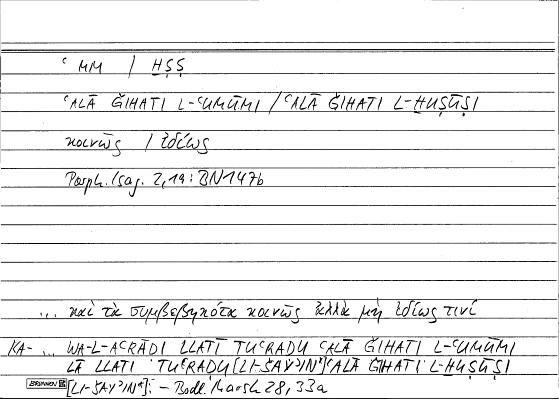 ʿMM / ḪṢṢ
ʿALĀ ǦIHATI L-ʿUMŪMI / ʿALĀ ǦIHATI L-ḪUṢŪṢI
κοινῶς / ἰδίως
Porph. Isag. 2,19: BN 147b
... καὶ τὰ συμβεβηκότα κοινῶς ἀλλὰ μὴ ἰδίως τινί
KA- ... WA-L-AʿRĀḌI LLATĪ TUʿRAḌU ʿALĀ ǦIHATI L-ʿUMŪMI
LĀ LLATĪ TUʿRAḌU [LI-ŠAYʾIN*] ʿALĀ ǦIHATI L-ḪUṢŪṢI
BRUNNEN [LI-ŠAYʾIN*]: – Bodl. Marsh 28, 33a